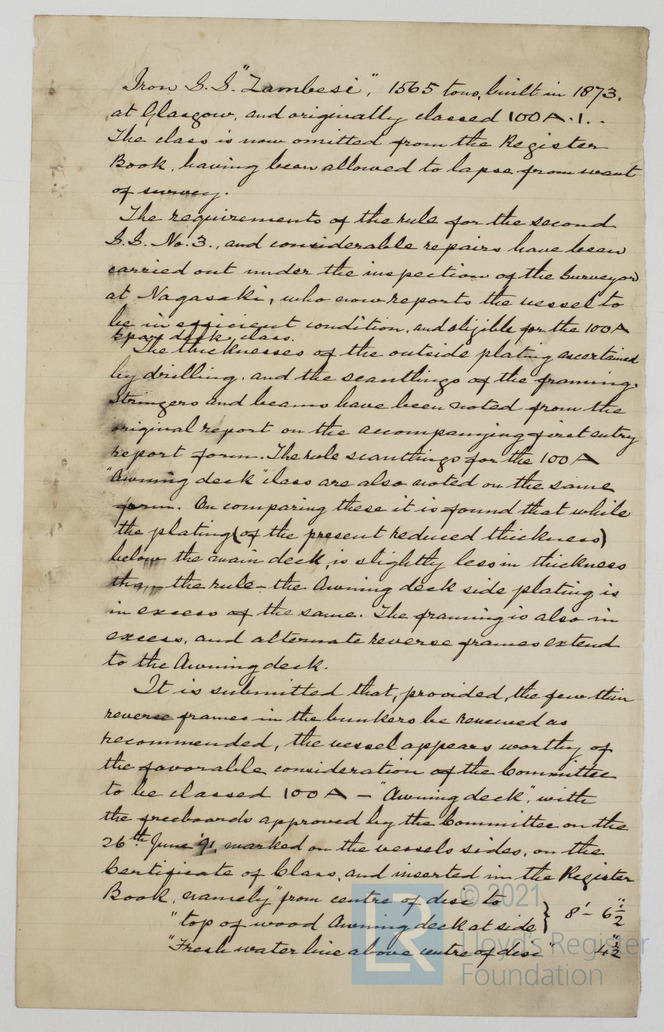 Iron S.S. "Zambesi", 1565 tons, built in 1873,
at Glasgow, and originally classed 100A.1..
The class is now omitted from the Register
Book, having been allowed to lapse from want
of survey.
The requirements of the rule for the second
S.S. No. 3., and considerable repairs have been
carried out under the inspection of the Surveyor
at Nagasaki, who now reports the vessel to
be in efficient condition, and eligible for the 100A
Spar deck class.
The thicknesses of the outside plating ascertained
by drilling, and the scantlings of the framing,
Stringers and beams have been noted from the
original report on the accompanying first entry
report form. The rule scantlings for the 100A
"Awning deck" class are also noted on the same
form. On comparing these it is found that while
the plating (of the present reduced thickness)
below the main deck, is slightly less in thickness
than the rule - the Awning deck side plating is
in excess of the same. The framing is also in
excess, and alternate reverse frames extend
to the Awning deck.
It is submitted that, provided, the few thin
reverse frames in the bunkers be renewed as
recommended, the vessel appears worthy of
the favorable consideration of the Committee
to be classed 100A - "Awning deck", with
the freeboards approved by the Committee on the
26th June '91, marked on the vessels sides, on the
Certificate of Class, and inserted in the Register
Book, namely "from centre of disc to
"top of wood Awning deck at side } 8' - 6 1/2"
"Fresh water line above centre of disc" 4 1/2"
© 2021
LR
Lloyd's Register
Foundation